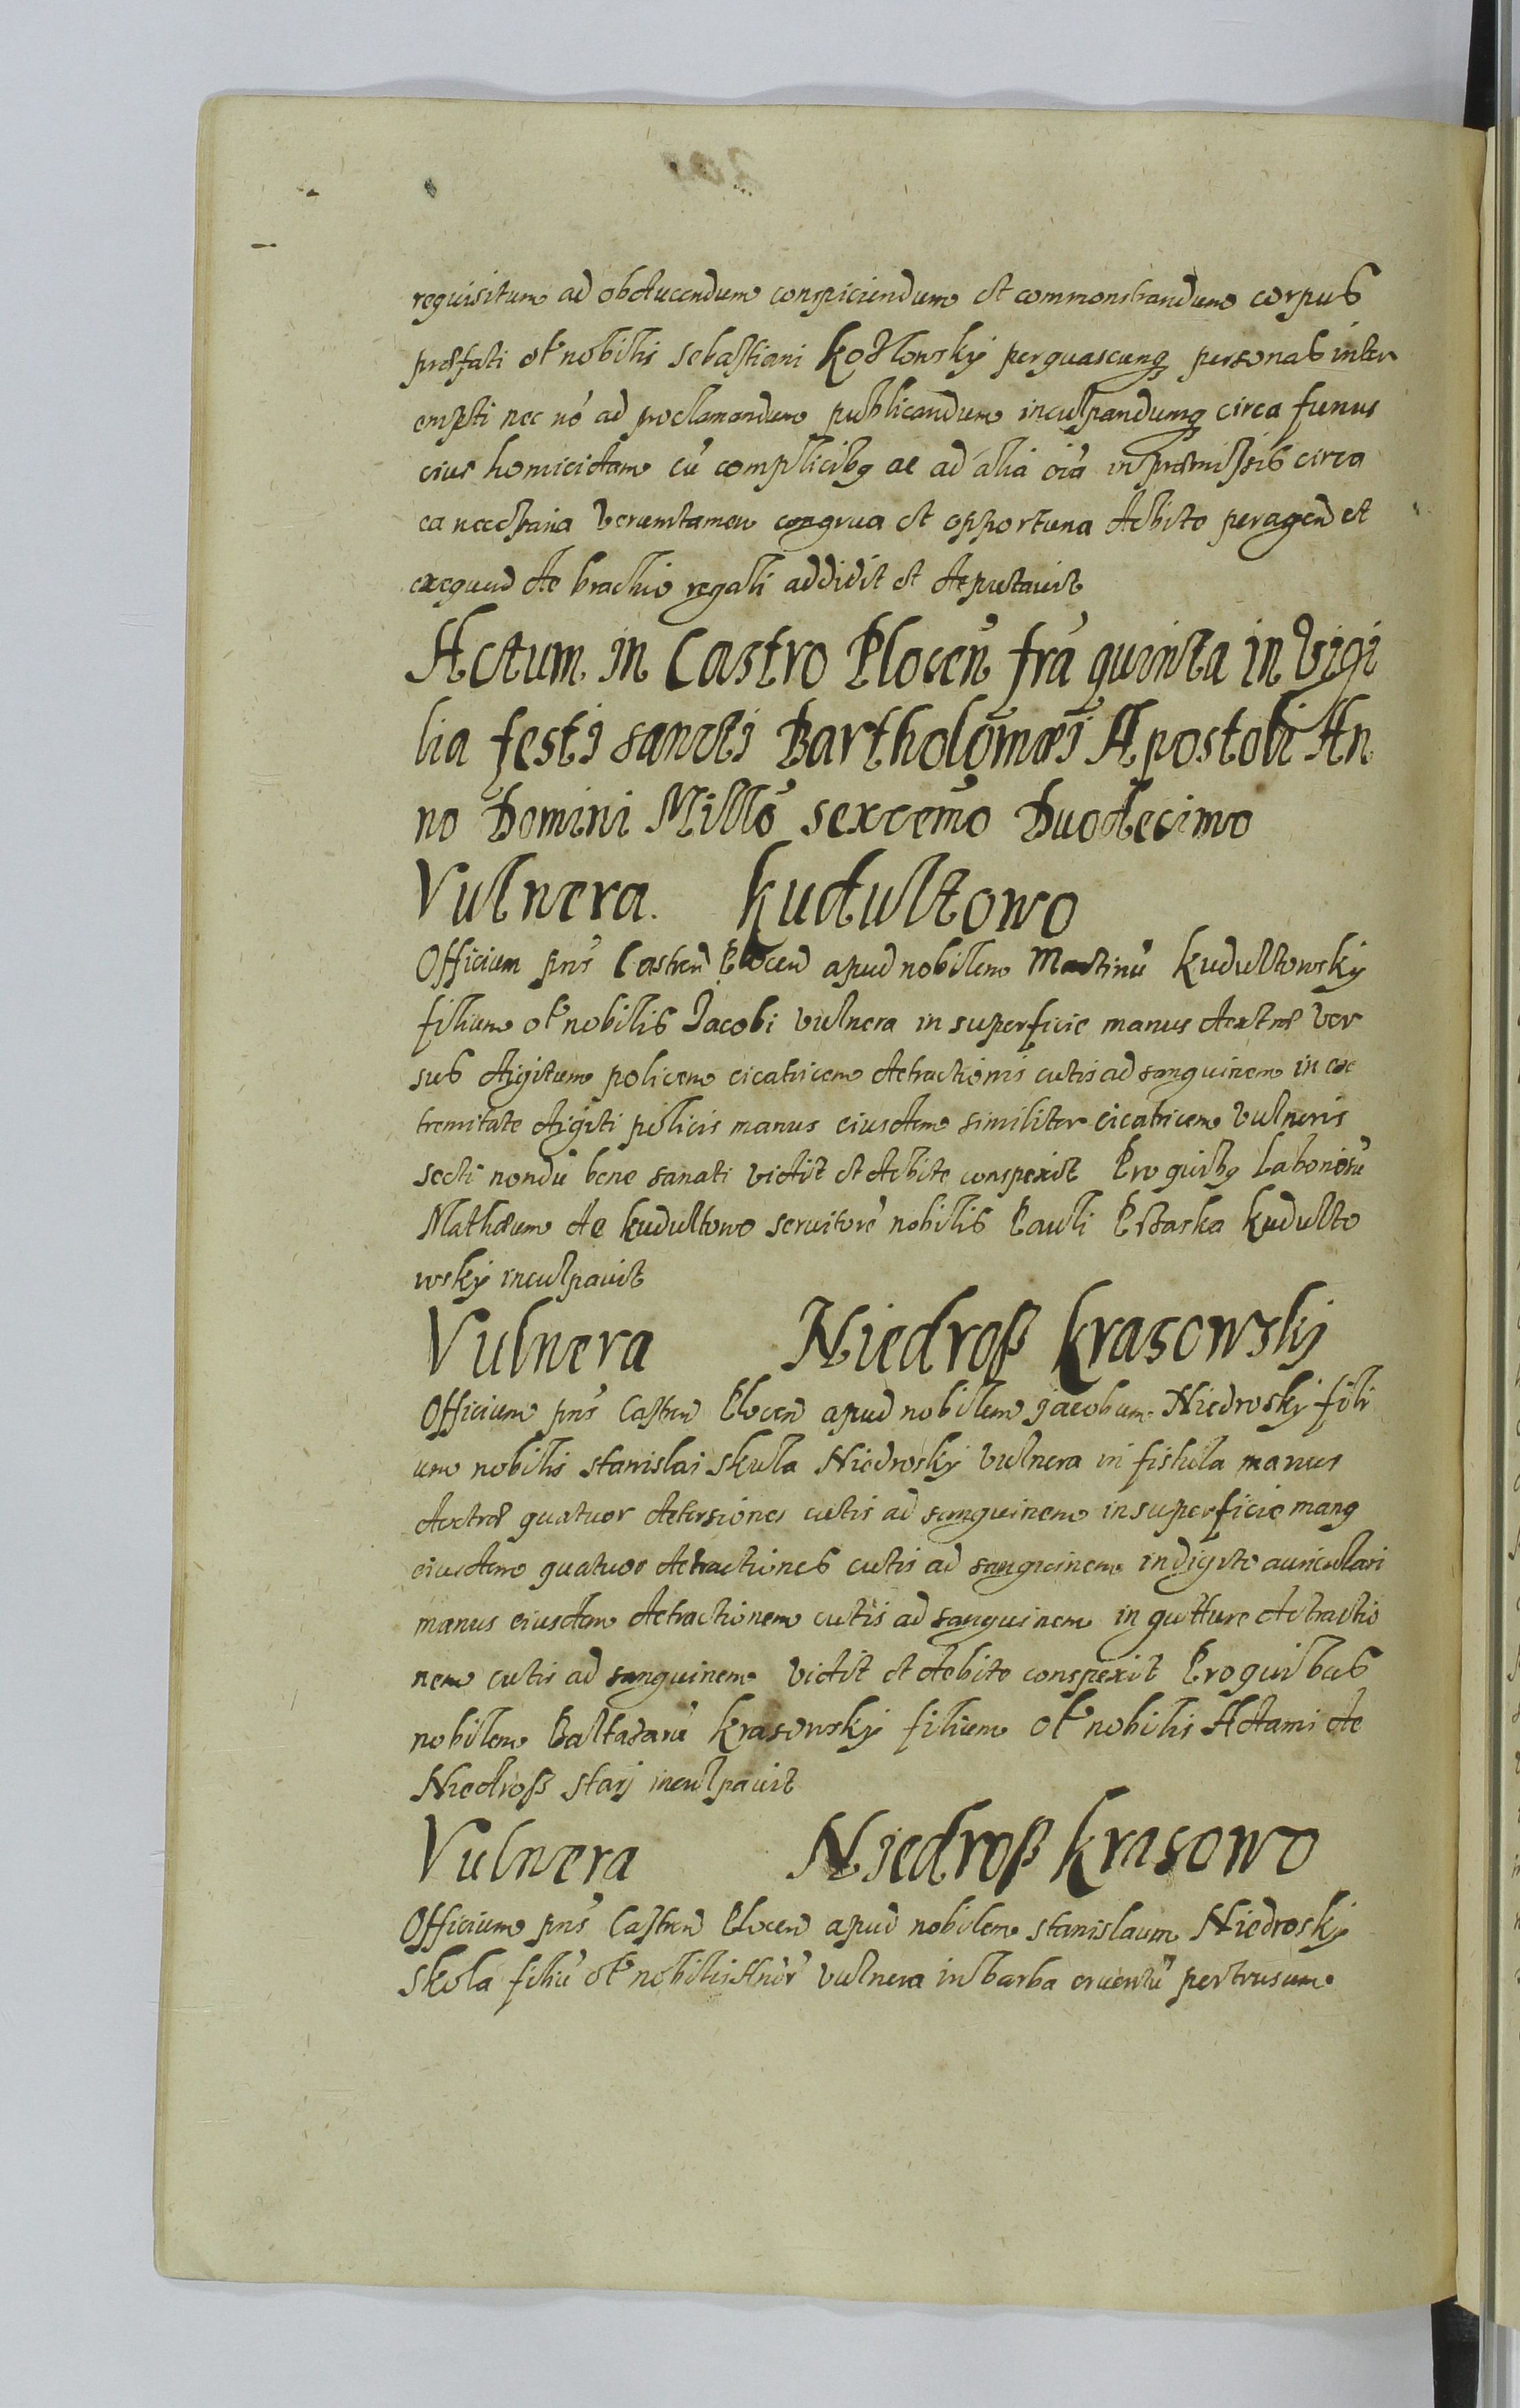 requisitum ad obducendum conspiciendum et commonstrandum corpus
præfati ol nobilis Sebastiani Kozlowskÿ per quascunq personas inter
empti nec nō ad proclamandum publicandum inculpandumq circa funus
eius homicidam cū complicibq ac ad alia oia in præmissis circa
ea necessaria veruntamen congrua et opportuna debite peragend et
exequend de brachio regali addidit et deputavit
Actum in Castro Plocen fra quinta in Vigi
lia festi sancti Bartholomæi Apostoli An
no Domini Millo sexcemo Duodecimo
Vulnera. Kudultowo
Officium pns Castren Plocen apud nobilem Martinū Kudultowskÿ
filium ol nobilis Jacobi vulnera in superficie manus dextræ ver
sus digitum policem cicatricem detractionis cutis ad sanguinem in ex
tremitate digiti policis manus eiusdem similiter cicatricem vulneris
secti nondū bene sanati vidit et debite conspexit Pro quibq Laboriosū
Mathæum de Kudultowo servitorē nobilis Pauli Kudulto
wskÿ inculpavit
Vulnera Niedroß Krasowskÿ
Officium pns Castren Plocen apud nobilem Jacobum Niedroskÿ fili
um nobilis Stanislai Skula Niedroskÿ vulnera in fistula manus
dextræ quatuor detersiones cutis ad sanguinem in superficie manq
eiusdem quatuor detractiones cutis ad sanguinem in digito auriculari
manus eiusdem detractionem cutis ad sanguinem in gutture detractio
nem cutis ad sanguinem vidit et debite conspexit Pro quibus
nobilem Baltazarū Krasowskÿ filium ol nobilis Adami de
Niedroß starj inculpavit
Vulnera Niedroß Krasowo
Officium pns Castren Plocen apud nobilem Stanislaum Niedroskÿ
Skola filiū ol nobilis vulnera in barba cruentū pertrusum